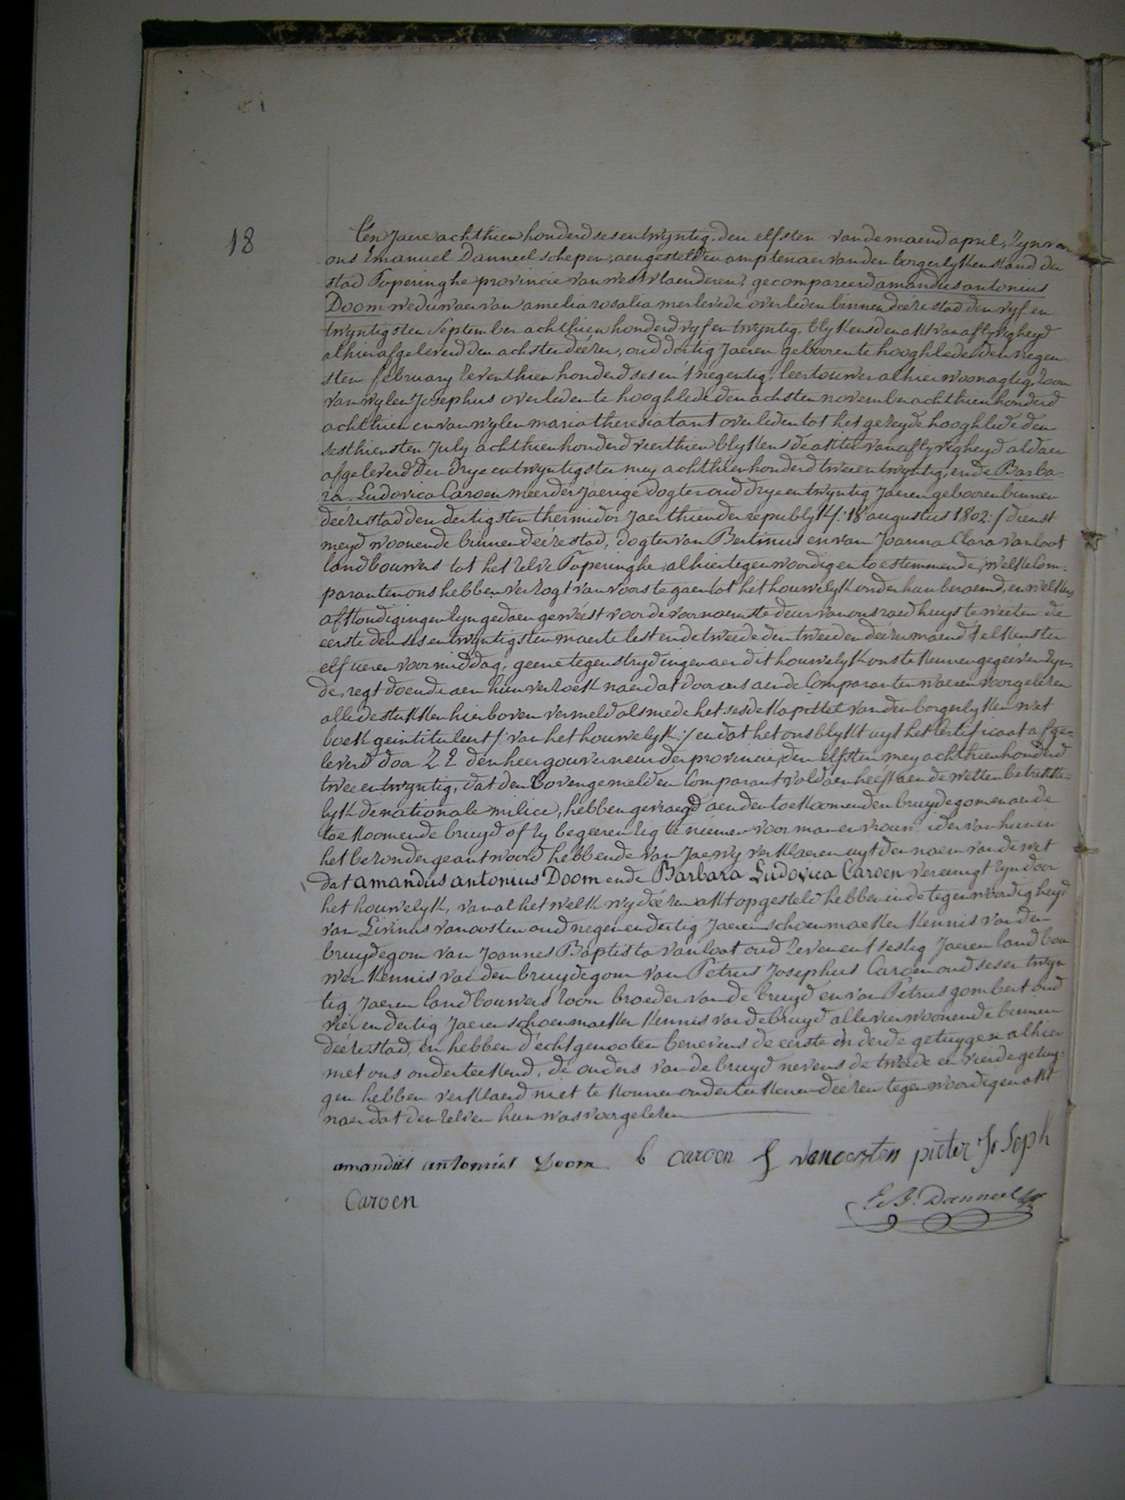 18
En jaere achthien honderd ses en twyntig den elfsten van de maend april, zyn van
ons Emanuel Danneel schepen, aengestelden amptenaer van den borgerlyken stand der
stad Poperinghe provincie van westvlaenderen, gecompareerd amandus antonius
Doom weduwaer van amelia rosalia merlevede overleden binnen deeze stad den vyf en
twyntigsten september achthien honderd vyf en twyntig, blykens den akt van aflyvigheyd
alhier afgeleverd den achsten deezer, oud dertig jaeren gebooren te hooghlede den negen
sten february zeventhien honderd ses en t'negentig, leertouwer alhier woonagtig, zoon
van wylen Josephus overleden te hooghlede den achsten november achthien honderd
achthien en van wylen maria theresia tant overleden tot het gezeyde hooghlede den
sesthiensten July achthien honderd vierthien blykens de akten van aflyvigheyd aldaer
afgeleverd den drye en twyntigsten mey achthien honderd twee en twyntig, ende Barba-
ra Ludovica Caroen meerderjaerige dogter oud drye en twyntig jaeren gebooren binnen
deeze stad den dertigsten thermidor jaer thien der republyk /: 18 augustus 1802 :/ dienst
meyd woonende binnen deeze stad, dogter van Bertinus en van Joanna Clara vanloot
landbouwers tot het zelve Poperinghe alhier tegenwoordig en toestemmende, welke Com-
paranten ons hebben verzogt van voorts te gaen tot het houwelyk onder hun beraemd, en welkers
afkondigingen zyn gedaen geweest voor de voornaemste deur van ons raedhuys te weeten de
eerste den ses en twyntigsten maerte lest ende tweede den tweeden deezer maend t'elkens ten
elf uren voormiddag, geene tegenstrydingen aen dit houwelyk ons te kennen gegeeven zyn-
de, regt doende aen hun verzoek naer dat door ons aen de Comparanten waeren voorgelezen
alle de stukken hier boven vermeld alsmede het sesde kapittel van den borgerlyken wet
boek geintituleert /: van het houwelyk :/ en dat het ons blykt uyt het Certificaet afge-
leverd door Z E den heer gouverneur der provincie, den elfsten mey achthien honderd
twee en twyntig, dat den bovengemelden Comparant voldaen heeft aen de wetten betrekke-
lyk de nationale milice, hebben gevraegd aen den toekoomenden bruydegom en aen de
toekoomende bruyd of zy begeeren zig te neemen voor man en vrouw ider van hunnen
het bezonder geantwoord hebbende van Jae, wy verklaeren uyt den naem van de wet
dat amandus antonius Doom ende Barbara Ludovica Caroen vereenigt zyn door
het houwelyk, van al het welk wy deezen akt opgesteld hebben in de tegenwoordigheyd
van Livinus vanoosten oud negen en dertig jaeren schoenmaeker kennis van den
bruydegom van Joannes Baptista vanloot oud zeven en t sestig jaeren landbou
wer kennis van den bruydegom van Petrus Josephus Caroen oud ses en twyn
tig jaeren landbouwers zoon broeder van de bruyd en van Petrus gombert oud
vier en dertig jaeren schoenmaeker kennis van de bruyd alle vier woonende binnen
deeze stad, en hebben d'echtgenooten benevens de eerste en derde getuygen alhier
met ons onderteekend, de ouders van de bruyd nevens de tweede en vierde getuy-
gen hebben verklaerd niet te konnen onderteekenen deezen tegenwoordigen akt
naer dat den zelven hun was voorgelezen
amandus antonius Doom b caroen L vanoosten pieter Joseph
Caroen E. J. Danneel